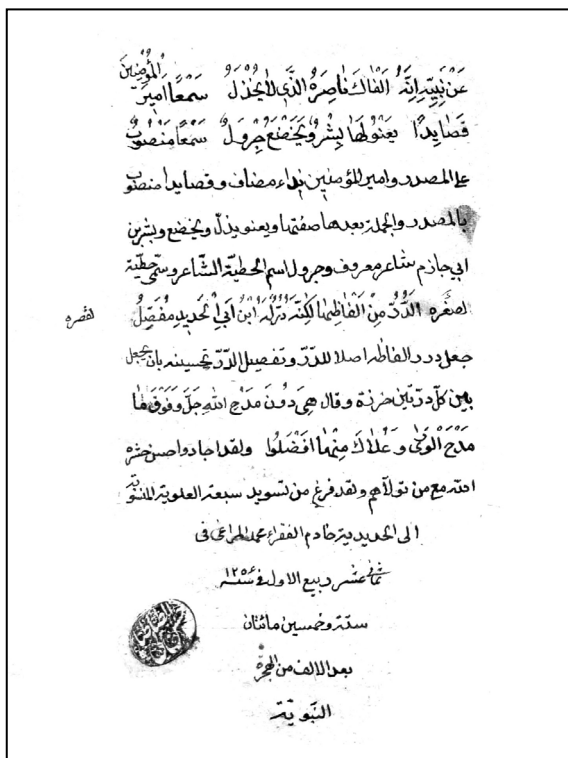 المؤمنين
عَنْ نَبِيِّهِ إِنَّهُ أَلْفَاكَ نَاصِرَهُ الَّذِي لَا يُخْذَلُ سَمْعًا أَمِيرَ
قَصَايِدًا يَعْنُو لَهَا بِشْرٌ وَيَخْضَعُ جَرْوَلُ سَمْعًا مَنْصُوبٌ
على المصدر وامير المؤمنين نداء مضاف وقصايدا منصوب
بالمصدر والجملة بعدها صفتها ويعنو يذلّ ويخضع وبشر بن
ابي حازم شاعر معروف وجرول اسم الحطيّة الشّاعر وسمّى حطيّة
لصغره الدُّرُّ مِنْ أَلْفَاظِهَا لَكِنَّهُ دُرٌّ لَهُ ابْنُ أَبِي الحَدِيدِ مُفَصِّلُ
لقصره
جعل درر الفاظه اصلا للدرّ وتفصيل الدّرّ تحسينه بان يجعل
بين كلّ درّتين خرزة وقال هِيَ دُونَ مَدْحِ اللهِ جَلَّ وَفَوْقَ مَا
مَدَحَ الْوَرَى وَعُلَاكَ مِنْهَا أَفْضَلُ ولقد اجاد واحسن حشره
الله مع من تولّاهم ولقد فرغ من تسويد سبعة العلوية المنسوبة
الى الحديدية خادم الفقراء محمد فى
ثانى عشر ربيع الاول فى سنة ١٢٥٦
ستة وخمسين مائتان
بعد الالف من الهجرة
النبوية